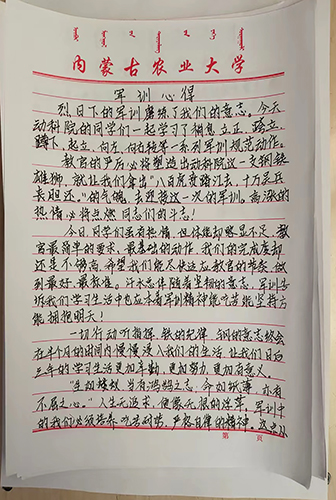 内蒙古农业大学
军训心得
烈日下的军训磨练了我们的意志。今天
动科院的同学们一起学习了稍息、立正、跨立、
蹲下、起立、向左、向右转等一系列军训规范动作。
教官的严厉必将塑造出动科院这一支钢铁
雄狮，就让我们拿出"八百虎贲踏江去，十万吴兵
丧胆还。"的气魄，去迎接这一次的军训，高涨的
热情必将点燃同志们的斗志！
今日同学们虽有热情，但体能却略显不足，教
官最简单的要求，最基础的动作，我们的完成度却
还是不够高，希望我们能尽快适应教官的节奏，做
到最好、最标准。汗水总伴随着坚韧的意志，军训告
诉我们学习生活中也应本着军训精神，能吃苦，能坚持，方
能拥抱明天！
一切行动听指挥，铁的纪律，钢的意志终会
在半个月的时间内慢慢浸入我们的生活，让我们日后
三年的学习生活更加辛勤，更加努力，更加有意义。
"生如蝼蚁，当有鸿鹄之志，命如纸薄，亦有
不屈之心。"人生无追求，便像无根的浮萍，军训中
的我们必须培养吃苦耐劳，严格自律的精神，
第 页